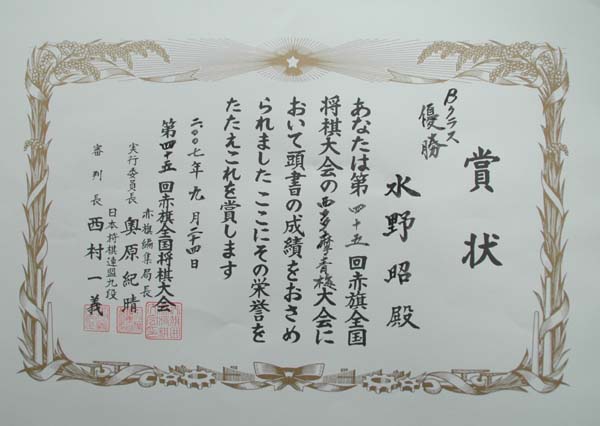 賞状
Bクラス
優勝
水野昭殿
あなたは第四十五回赤旗全国
将棋大会の西多摩青梅大会に
おいて頭書の成績をおさめ
られましたここにその栄誉を
たたえこれを賞します
二〇〇七年九月二十四日
第四十五回赤旗全国将棋大会
赤旗編集局長
実行委員長 奥原紀晴
日本将棋連盟九段
審判長 西村一義